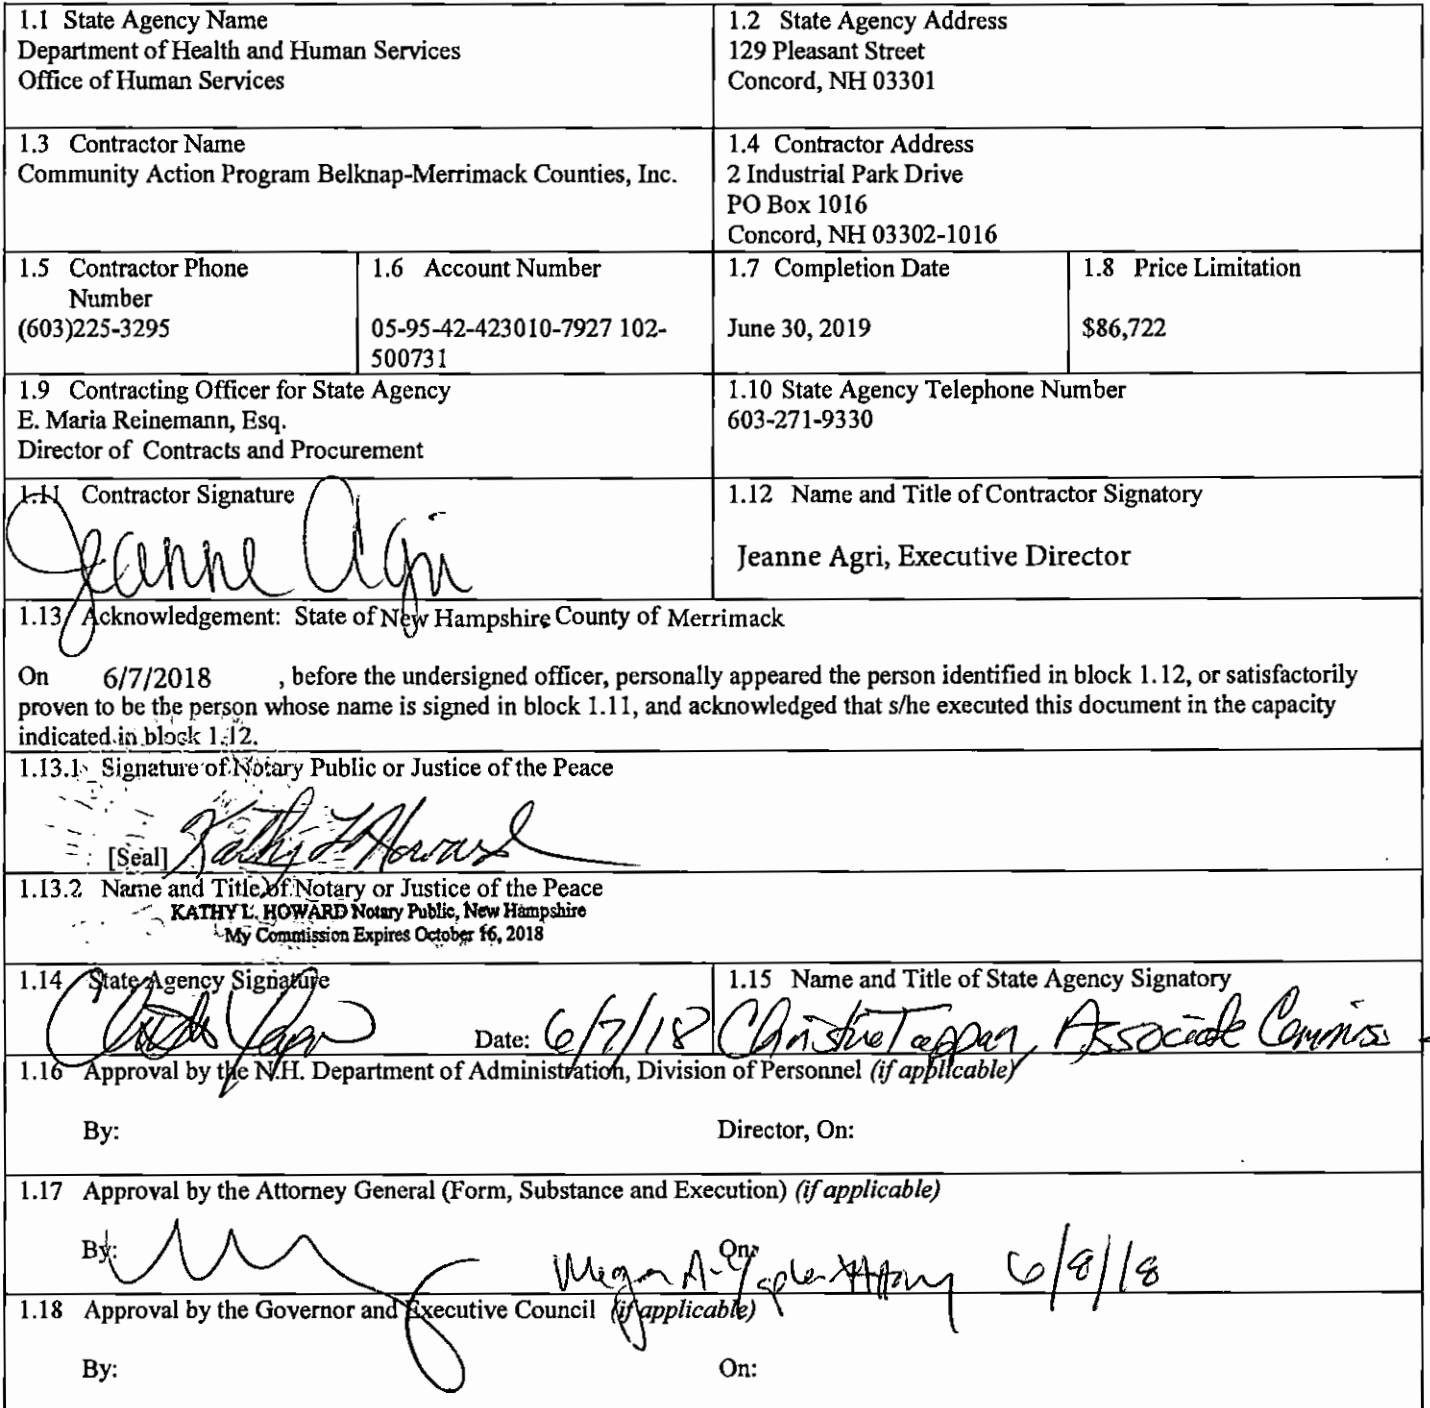 1.1 State Agency Name
Department of Health and Human Services
Office of Human Services
1.2 State Agency Address
129 Pleasant Street
Concord, NH 03301
1.3 Contractor Name
Community Action Program Belknap-Merrimack Counties, Inc.
1.4 Contractor Address
2 Industrial Park Drive
PO Box 1016
Concord, NH 03302-1016
1.5 Contractor Phone
Number
(603)225-3295
1.6 Account Number
05-95-42-423010-7927 102-
500731
1.7 Completion Date
June 30, 2019
1.8 Price Limitation
$86,722
1.9 Contracting Officer for State Agency
E. Maria Reinemann, Esq.
Director of Contracts and Procurement
1.10 State Agency Telephone Number
603-271-9330
1.11 Contractor Signature
Jeanne Agri
1.12 Name and Title of Contractor Signatory
Jeanne Agri, Executive Director
1.13 Acknowledgement: State of New Hampshire County of Merrimack
On 6/7/2018 , before the undersigned officer, personally appeared the person identified in block 1.12, or satisfactorily
proven to be the person whose name is signed in block 1.11, and acknowledged that s/he executed this document in the capacity
indicated in block 1.12.
1.13.1 Signature of Notary Public or Justice of the Peace
[Seal] Kathy L Howard
1.13.2 Name and Title of Notary or Justice of the Peace
KATHY L. HOWARD Notary Public, New Hampshire
My Commission Expires October 16, 2018
1.14 State Agency Signature
Date: 6/7/18
1.15 Name and Title of State Agency Signatory
Christine Tappan, Associate Commiss
1.16 Approval by the N.H. Department of Administration, Division of Personnel (if applicable)
By: Director, On:
1.17 Approval by the Attorney General (Form, Substance and Execution) (if applicable)
By: On: Megan A. 6/8/18
1.18 Approval by the Governor and Executive Council (if applicable)
By: On: